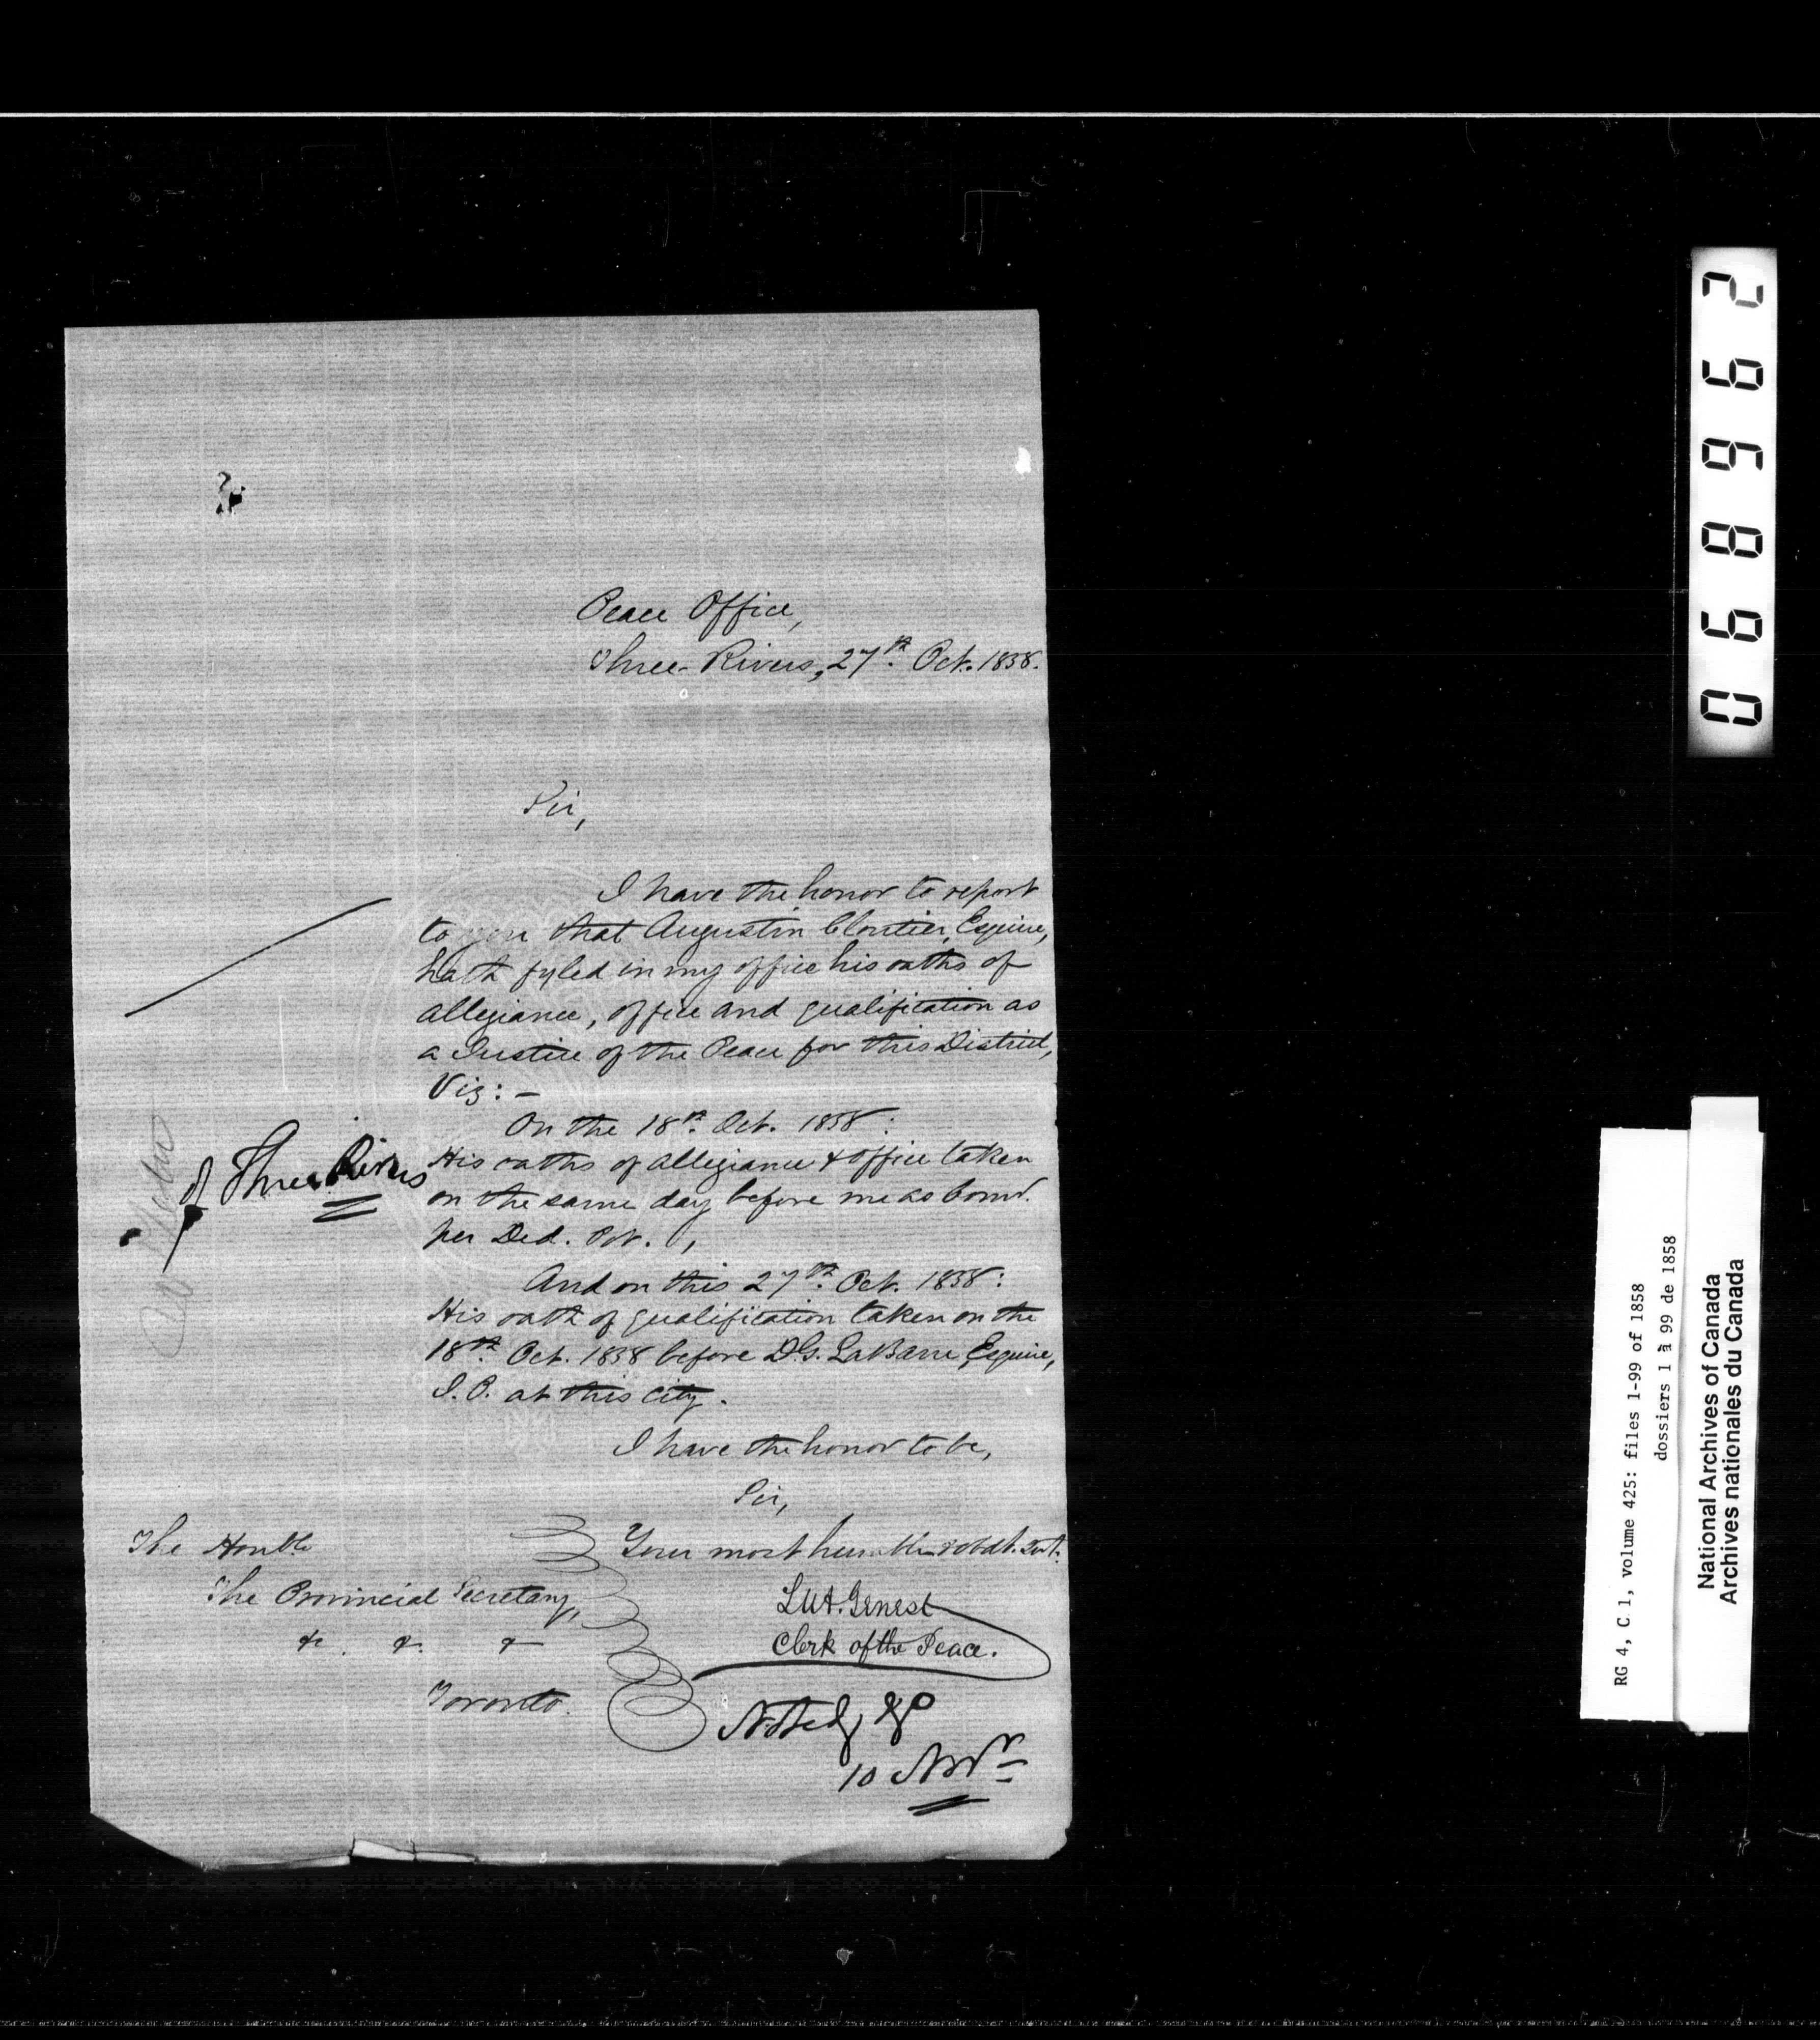 Peace Office,
Three-Rivers, 27th. Oct. 1858.
Sir,
I have the honor to report
to you that Augustin Cloutier, Esquire,
hath fyled in my office his oaths of
allegiance, office and qualification as
a Justice of the Peace for this District,
Viz: -
On the 18th. Oct. 1858:
of Three Rivers
His oaths of allegiance & office taken
on the same day before me as Comr.
per Ded. Pot.,
And on this 27th. Oct. 1858:
His oath of qualification taken on the
18th. Oct. 1858 before D.G. LaBarre, Esquire,
J.P. at this City.
I have the honor to be,
Sir,
Your most humble & obdt. Svt.
The Honble
The Provincial Secretary,
&c. &c. &c
Toronto.
L.U.A. Genest
Clerk of the Peace.
Noted,
10 Novr
068962
RG 4, C 1, volume 425: files 1-99 of 1858
dossiers 1 à 99 de 1858
National Archives of Canada
Archives nationales du Canada